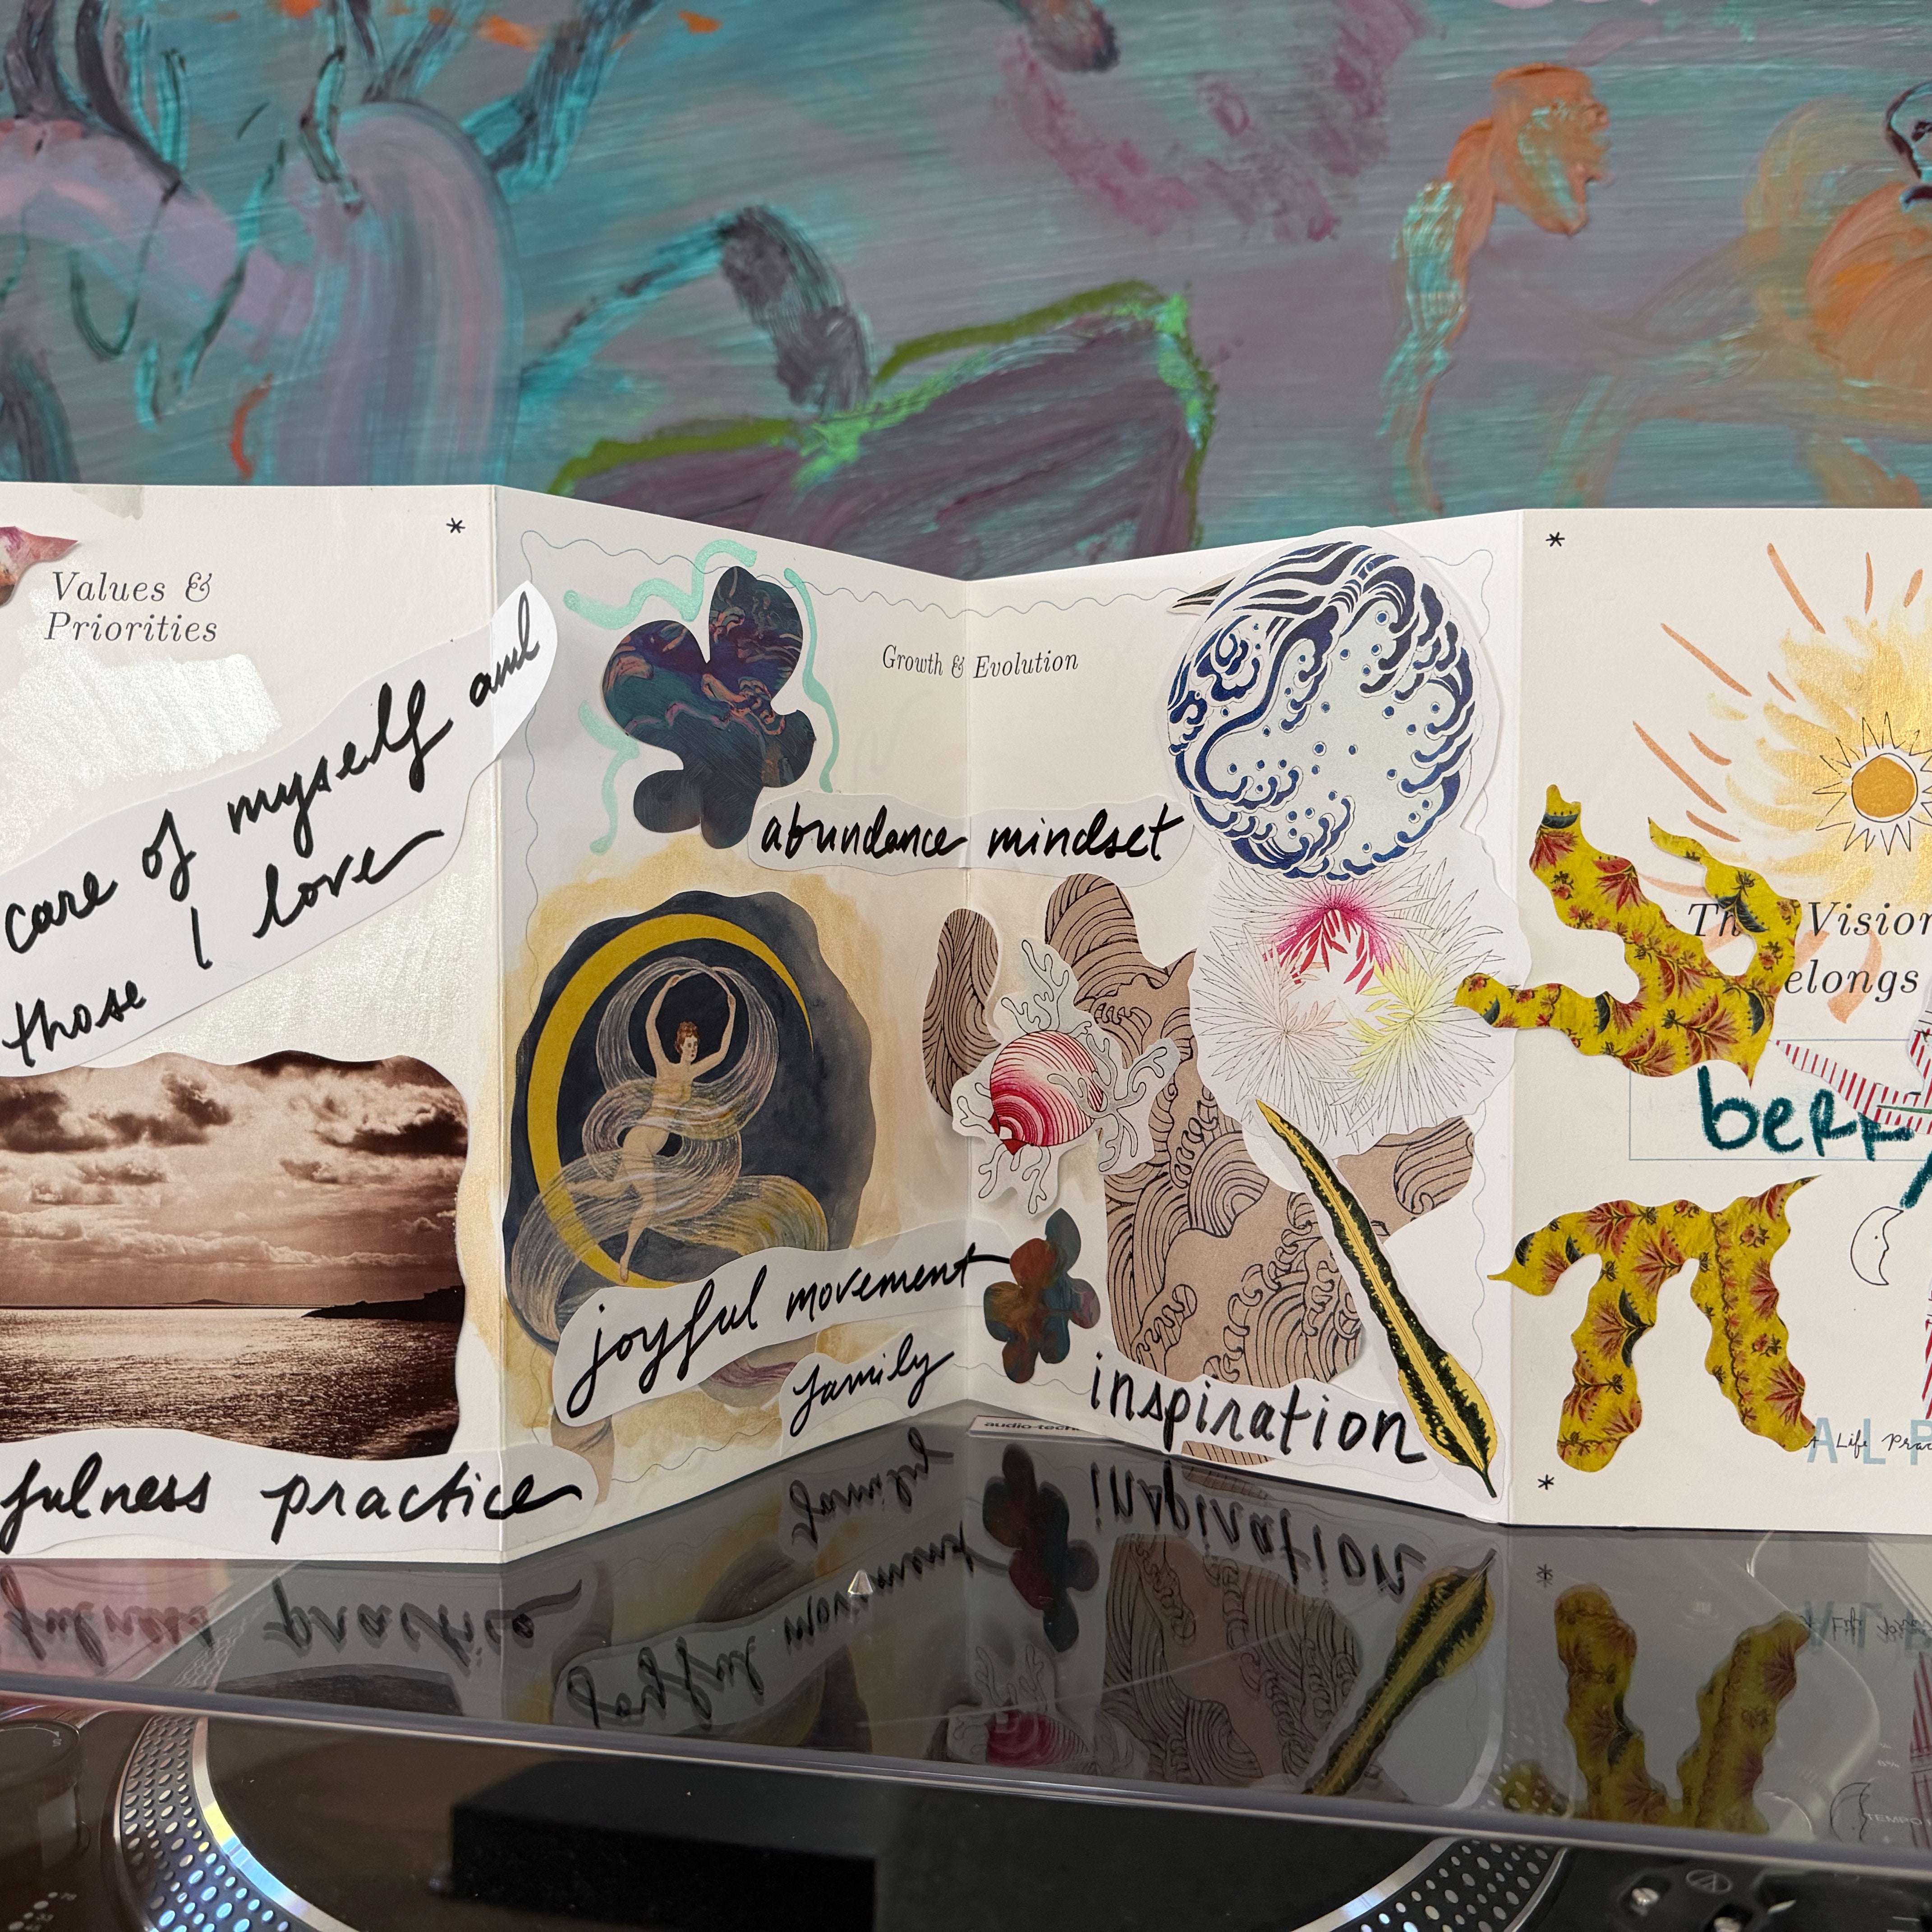 *
Values &
Priorities
care of myself and
those I love
fulness practice
Growth & Evolution
abundance mindset
joyful movement
family
inspiration
audio-tech
*
Vision
elongs
berry
A Life Prac
ALP
*
TEMPO